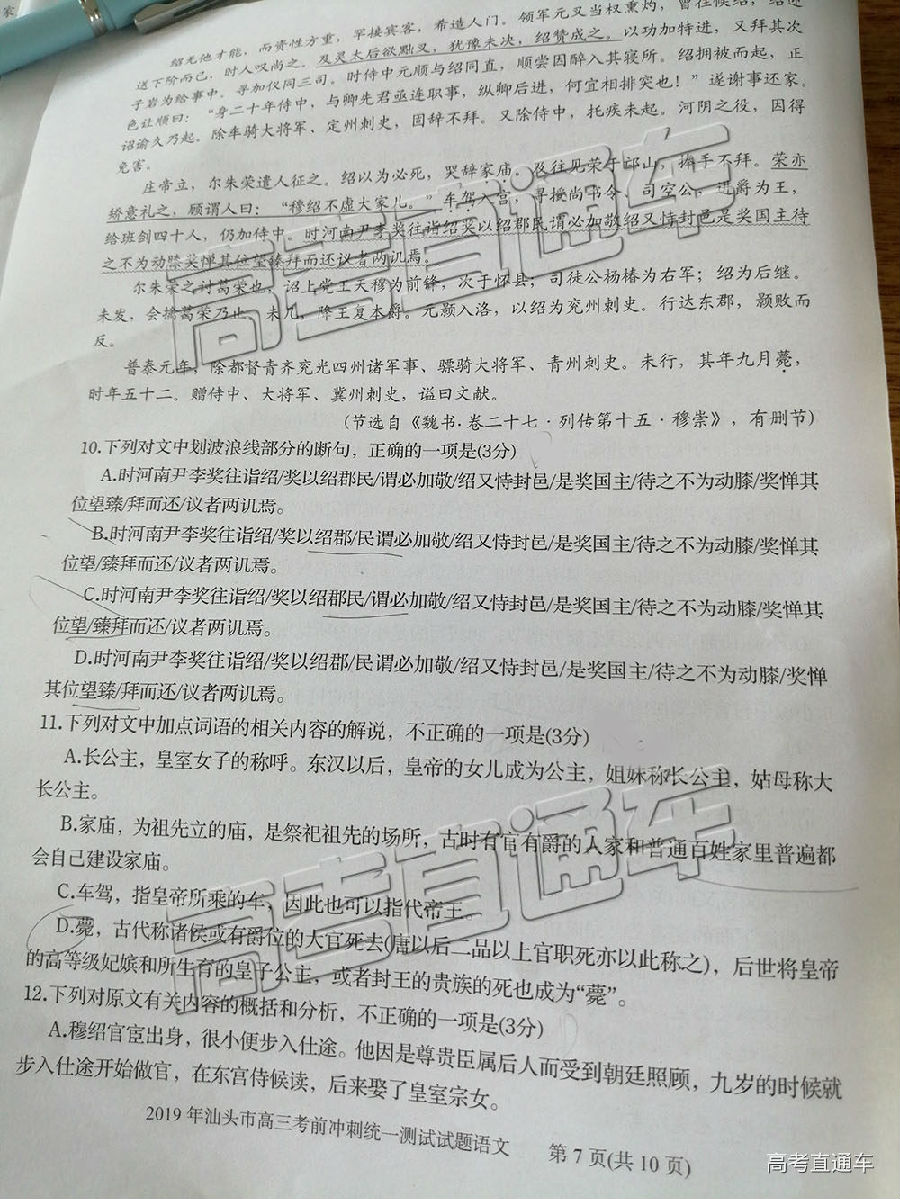 绍无他才能，而资性方重，罕接宾客，希造人门。领军元叉当权熏灼，曾往候绍，绍迎
送下阶而已，时人叹尚之。及灵太后欲黜叉，犹豫未决，绍赞成之。以功加特进，又拜其次
子岩为给事中。寻加仪同三司。时侍中元顺与绍同直，顺尝因醉入其寝所。绍拥被而起，正
色让顺曰：“身二十年侍中，与卿先君亟连职事，纵卿后进，何宜相排突也！”遂谢事还家，
诏谕久乃起。除车骑大将军、定州刺史，固辞不拜。又除侍中，托疾未起。河阴之役，因得
免害。
庄帝立，尔朱荣遣人征之。绍以为必死，哭辞家庙。及往见荣于邙山，捧手不拜。荣亦
矫意礼之，顾谓人曰：“穆绍不虚大家儿。”车驾入宫，寻授尚书令、司空公，进爵为王，
给班剑四十人，仍加侍中。时河南尹李奖往诣绍奖以绍郡民谓必加敬绍又恃封邑是奖国主待
之不为动膝奖惮其位望臻拜而还议者两讥焉。
尔朱荣之讨葛荣也，诏上党王天穆为前锋，次于怀县；司徒公杨椿为右军；绍为后继。
未发，会擒葛荣乃止。未几，降王复本爵。元颢入洛，以绍为兖州刺史。行达东郡，颢败而
反。
普泰元年，除都督青齐兖光四州诸军事、骠骑大将军、青州刺史。未行，其年九月薨，
时年五十二。赠侍中、大将军、冀州刺史，谥曰文献。
（节选自《魏书·卷二十七·列传第十五·穆崇》，有删节）
10.下列对文中划波浪线部分的断句，正确的一项是(3分)
A.时河南尹李奖往诣绍/奖以绍郡民/谓必加敬/绍又恃封邑/是奖国主/待之不为动膝/奖惮其
位望臻/拜而还/议者两讥焉。
B.时河南尹李奖往诣绍/奖以绍郡/民谓必加敬/绍又恃封邑/是奖国主/待之不为动膝/奖惮其
位望/臻拜而还/议者两讥焉。
C.时河南尹李奖往诣绍/奖以绍郡民/谓必加敬/绍又恃封邑/是奖国主/待之不为动膝/奖惮其
位望/臻拜而还/议者两讥焉。
D.时河南尹李奖往诣绍/奖以绍郡/民谓必加敬/绍又恃封邑/是奖国主/待之不为动膝/奖惮
其位望臻/拜而还/议者两讥焉。
11.下列对文中加点词语的相关内容的解说，不正确的一项是(3分)
A.长公主，皇室女子的称呼。东汉以后，皇帝的女儿成为公主，姐妹称长公主，姑母称大
长公主。
B.家庙，为祖先立的庙，是祭祀祖先的场所，古时有官有爵的人家和普通百姓家里普遍都
会自己建设家庙。
C.车驾，指皇帝所乘的车，因此也可以指代帝王。
D.薨，古代称诸侯或有爵位的大官死去(唐以后二品以上官职死亦以此称之)，后世将皇帝
的高等级妃嫔和所生育的皇子公主，或者封王的贵族的死也成为“薨”。
12.下列对原文有关内容的概括和分析，不正确的一项是(3分)
A.穆绍官宦出身，很小便步入仕途。他因是尊贵臣属后人而受到朝廷照顾，九岁的时候就
步入仕途开始做官，在东宫侍候读，后来娶了皇室宗女。
2019年汕头市高三考前冲刺统一测试试题语文 第7页(共10页)
高考直通车
高考直通车
高考直通车